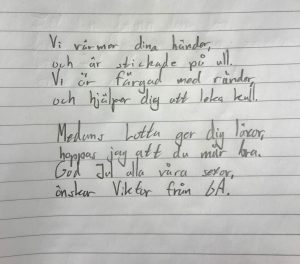 Vi värmer dina händer,
och är stickade på ull.
Vi är färgad med ränder,
och hjälper dig att leka kull.
Medans Lotta ger dig lövor,
hoppas jag att du mår bra.
God Jul alla våra
önskar Viktor från 6A.